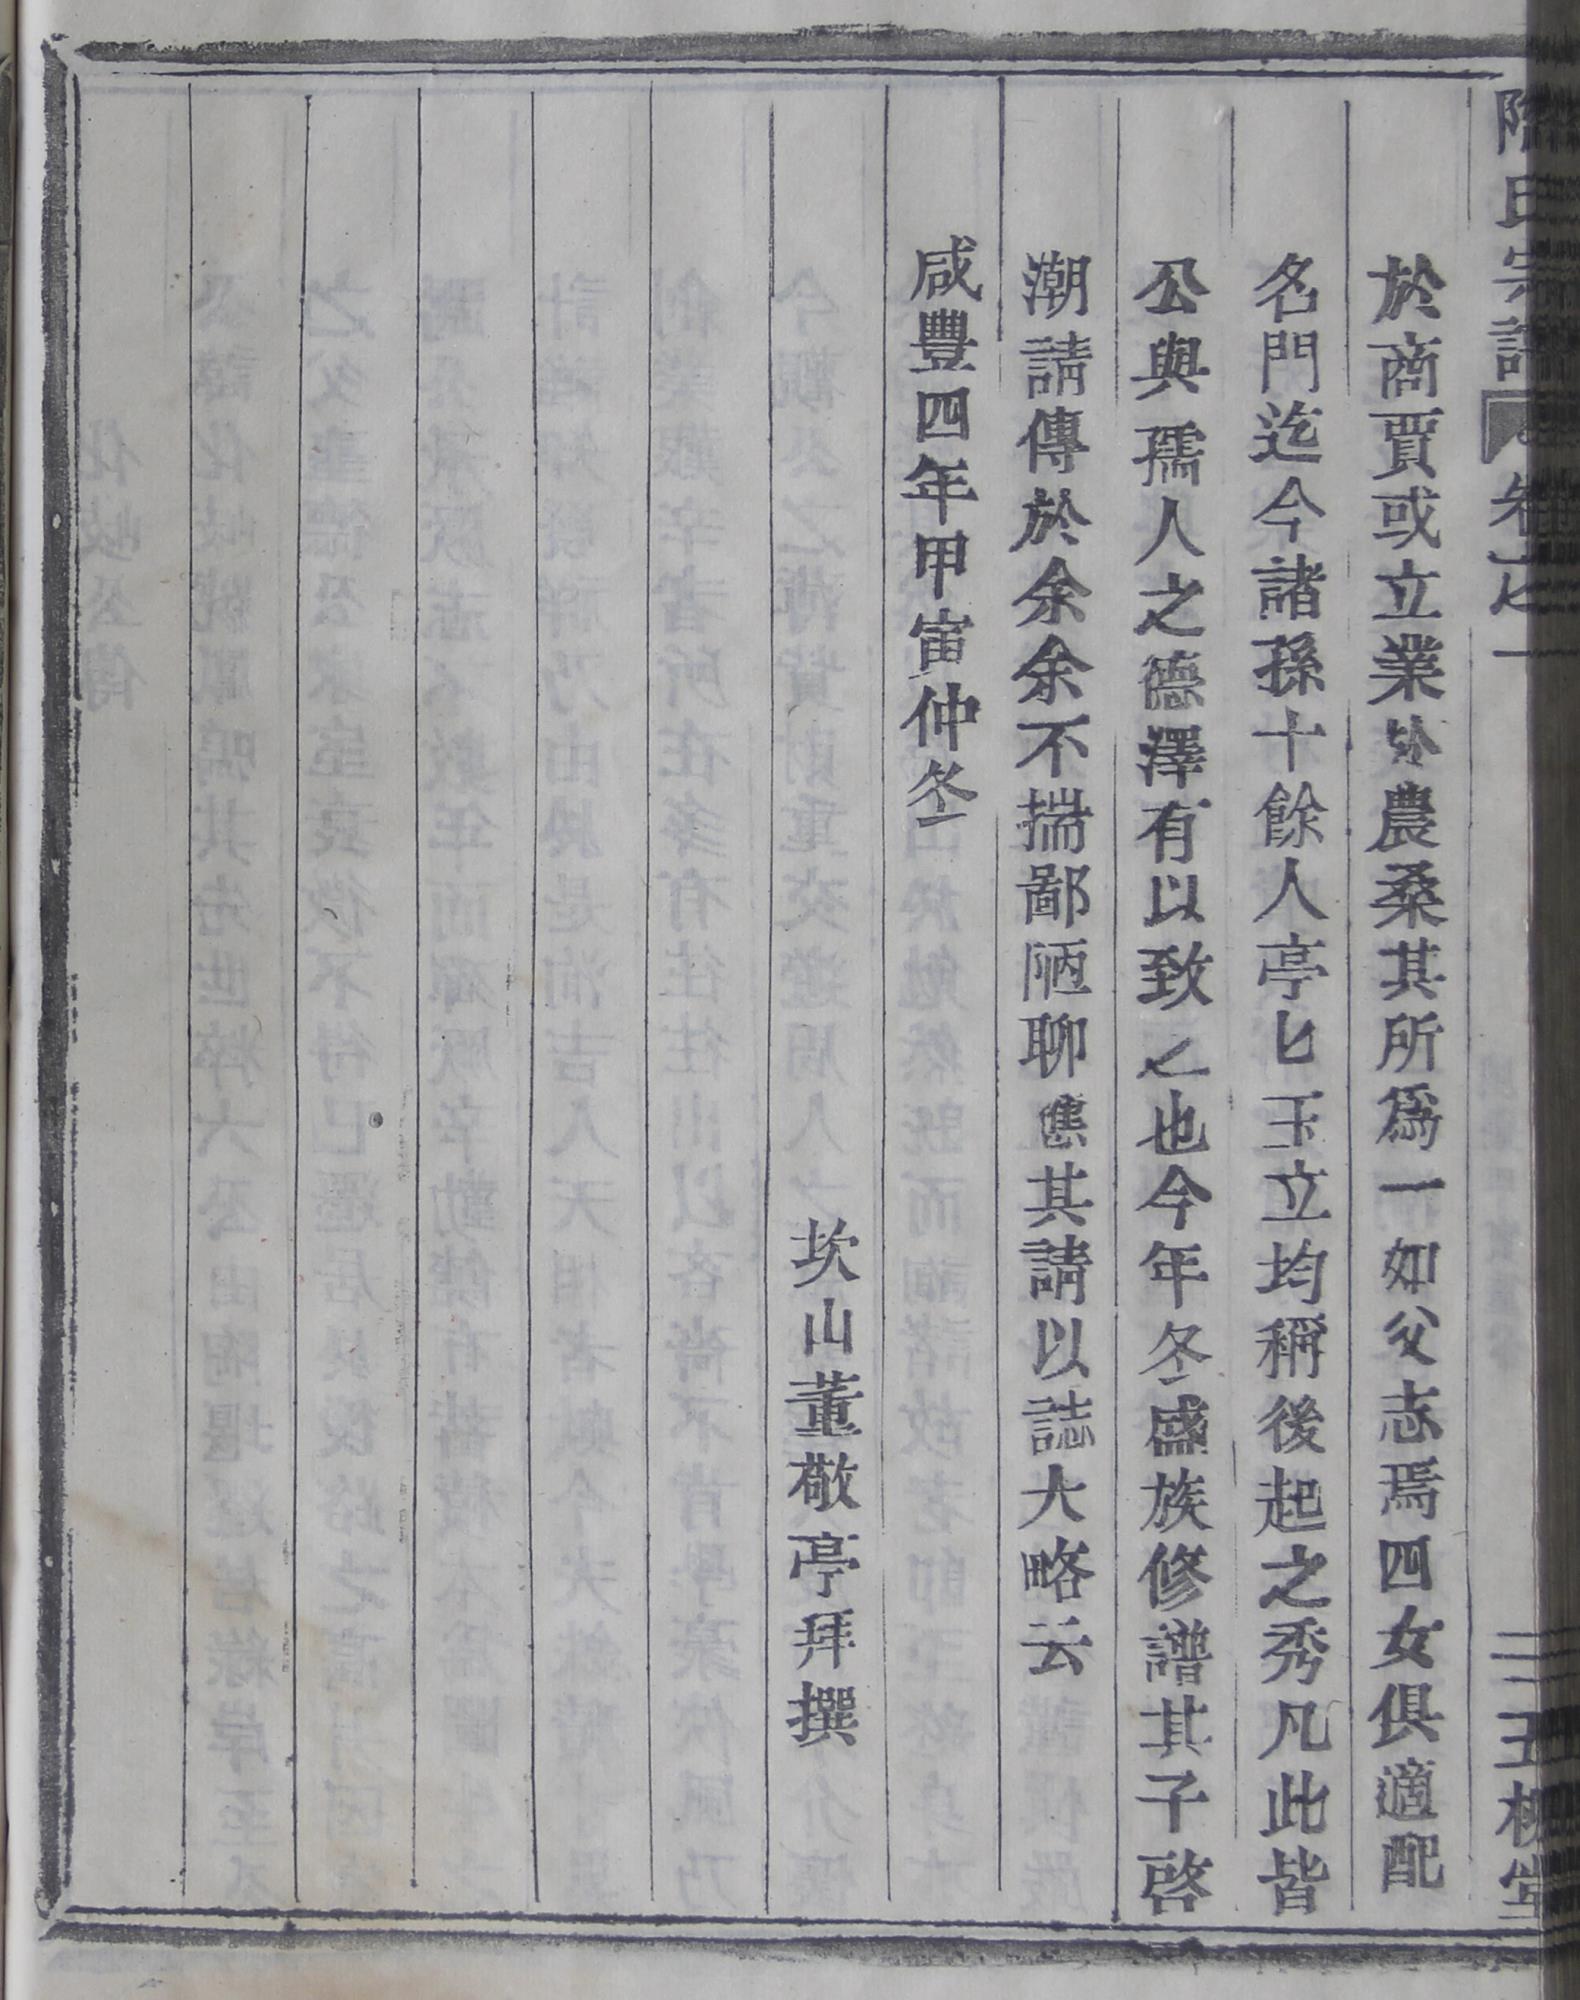 陶氏宗譜 卷之一 五柳堂
於商賈或立業於農桑其所爲一如父志焉四女俱適配
名門迄今諸孫十餘人亭匕玉立均稱後起之秀凡此皆
公與孺人之德澤有以致之也今年冬盛族修譜其子啓
潮請傳於余余不揣鄙陋聊應其請以誌大略云
咸豐四年甲寅仲冬
坎山董敬亭拜撰